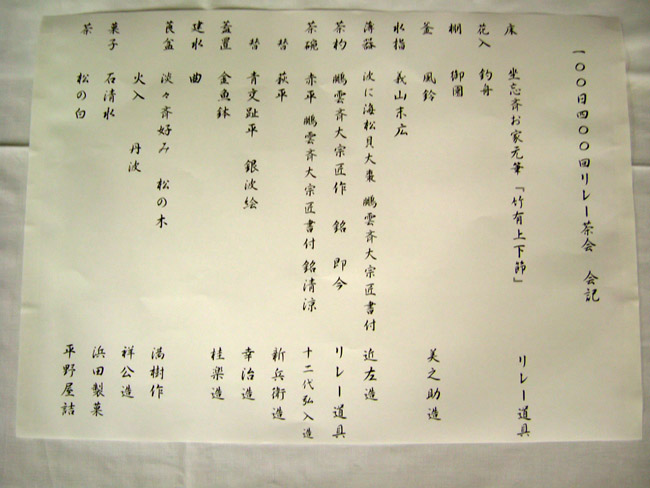 一〇〇日四〇〇回リレー茶会 会記
床 坐忘斉お家元筆 「竹有上下節」 リレー道具
花入 釣舟
棚 御園
釜 風鈴 美之助造
水指 義山末広
薄器 波に海松貝大棗 鵬雲斉大宗匠書付 近左造
茶杓 鵬雲斉大宗匠作 銘 即今 リレー道具
茶碗 赤平 鵬雲斉大宗匠書付 銘清涼 十二代弘入造
替 萩平 新兵衛造
替 青交趾平 銀波絵 幸治造
蓋置 金魚鉢 桂楽造
建水 曲
莨盆 淡々斉好み 松の木 満樹作
火入 丹波 祥公造
菓子 石清水 浜田製菓
茶 松の白 平野屋詰